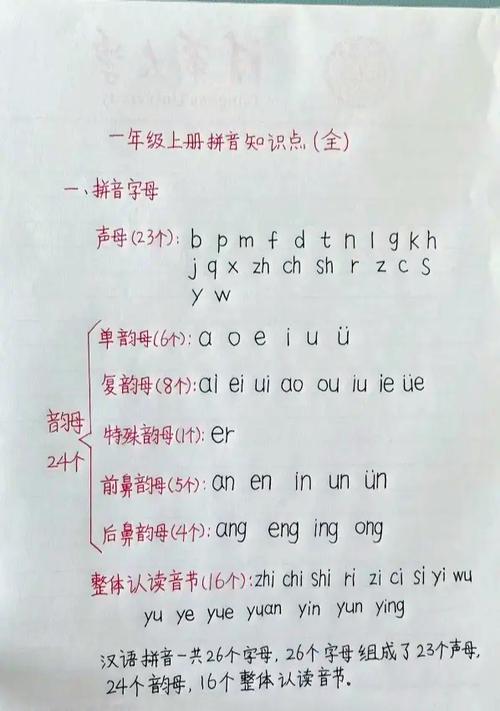 一年级上册拼音知识点(全)
一、拼音字母
声母(23个): b p m f d t n l g k h
j q x zh ch sh r z c s
y w
韵母
24个
单韵母(6个): a o e i u ü
复韵母(8个): ai ei ui ao ou iu ie üe
特殊韵母(1个): er
前鼻韵母(5个): an en in un ün
后鼻韵母(4个): ang eng ing ong
整体认读音节(16个): zhi chi shi ri zi ci si yi wu
yu ye yue yuan yin yun ying
汉语拼音一共26个字母, 26个字母组成了23个声母,
24个韵母, 16个整体认读音节。